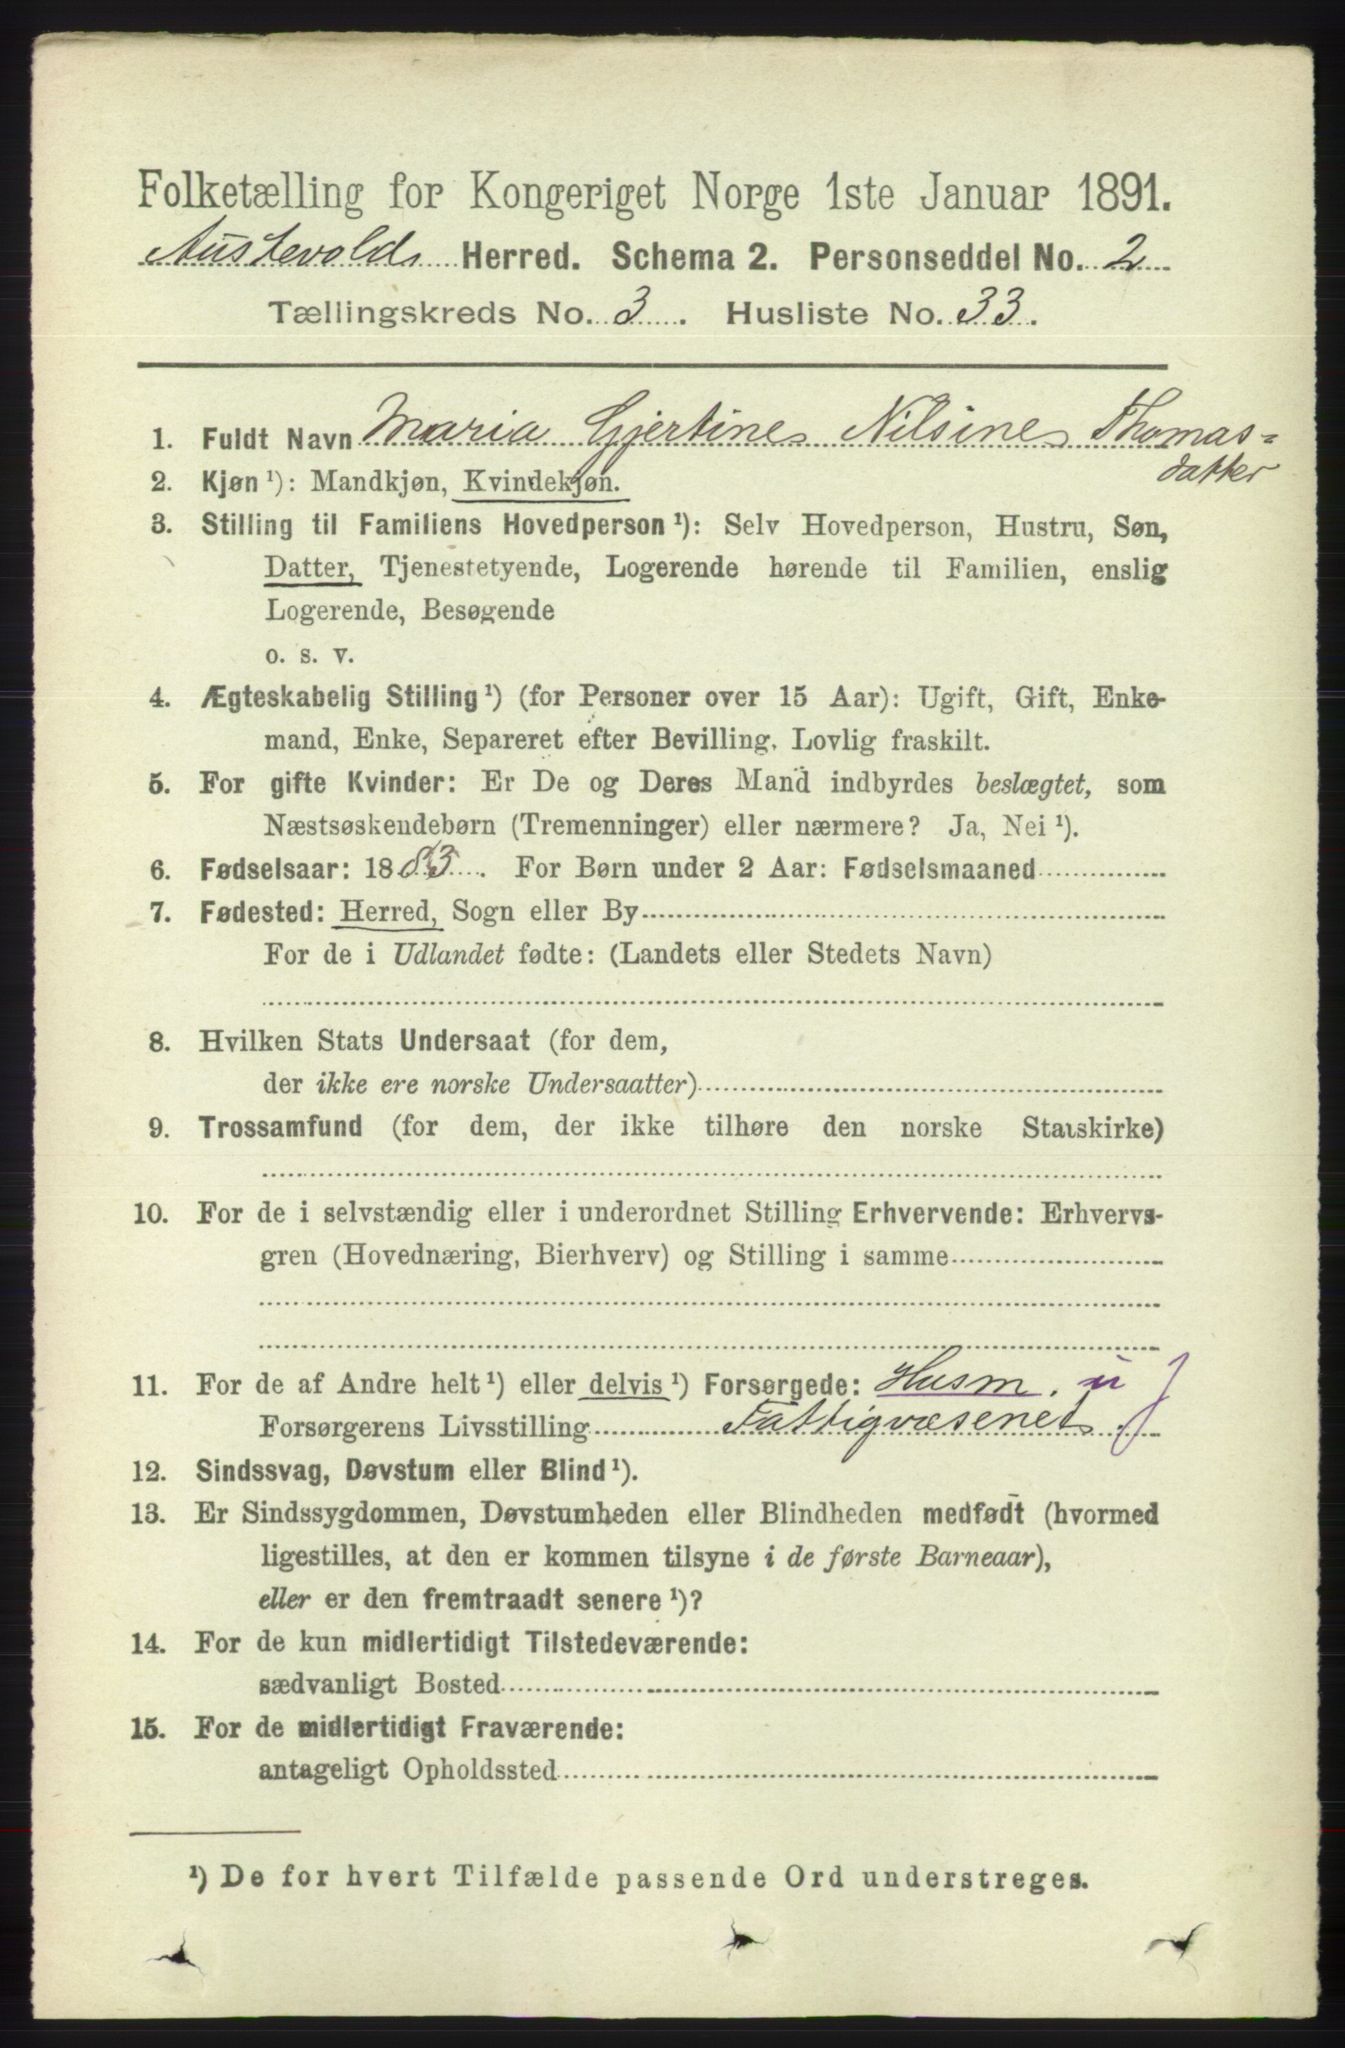 Folketælling for Kongeriget Norge 1ste Januar 1891.
Austevolds Herred. Schema 2. Personseddel No. 2
Tællingskreds No. 3. Husliste No. 33.
1. Fuldt Navn Maria Gjertine Nilsine Thomas=
datter
2. Kjøn ¹): Mandkjøn, Kvindekjøn.
3. Stilling til Familiens Hovedperson ¹): Selv Hovedperson, Hustru, Søn,
Datter, Tjenestetyende, Logerende hørende til Familien, enslig
Logerende, Besøgende
o. s. v.
4. Ægteskabelig Stilling ¹) (for Personer over 15 Aar): Ugift, Gift, Enke-
mand, Enke, Separeret efter Bevilling, Lovlig fraskilt.
5. For gifte Kvinder: Er De og Deres Mand indbyrdes beslægtet, som
Næstsøskendebørn (Tremenninger) eller nærmere? Ja, Nei ¹).
6. Fødselsaar: 1883. For Børn under 2 Aar: Fødselsmaaned
7. Fødested: Herred, Sogn eller By
For de i Udlandet fødte: (Landets eller Stedets Navn)
8. Hvilken Stats Undersaat (for dem,
der ikke ere norske Undersaatter)
9. Trossamfund (for dem, der ikke tilhøre den norske Statskirke)
10. For de i selvstændig eller i underordnet Stilling Erhvervende: Erhvervs-
gren (Hovednæring, Bierhverv) og Stilling i samme
11. For de af Andre helt ¹) eller delvis ¹) Forsørgede: Husm. u J
Forsørgerens Livsstilling Fattigvæsenet.
12. Sindssvag, Døvstum eller Blind ¹).
13. Er Sindssygdommen, Døvstumheden eller Blindheden medfødt (hvormed
ligestilles, at den er kommen tilsyne i de første Barneaar),
eller er den fremtraadt senere ¹)?
14. For de kun midlertidigt Tilstedeværende:
sædvanligt Bosted
15. For de midlertidigt Fraværende:
antageligt Opholdssted
¹) De for hvert Tilfælde passende Ord understreges.